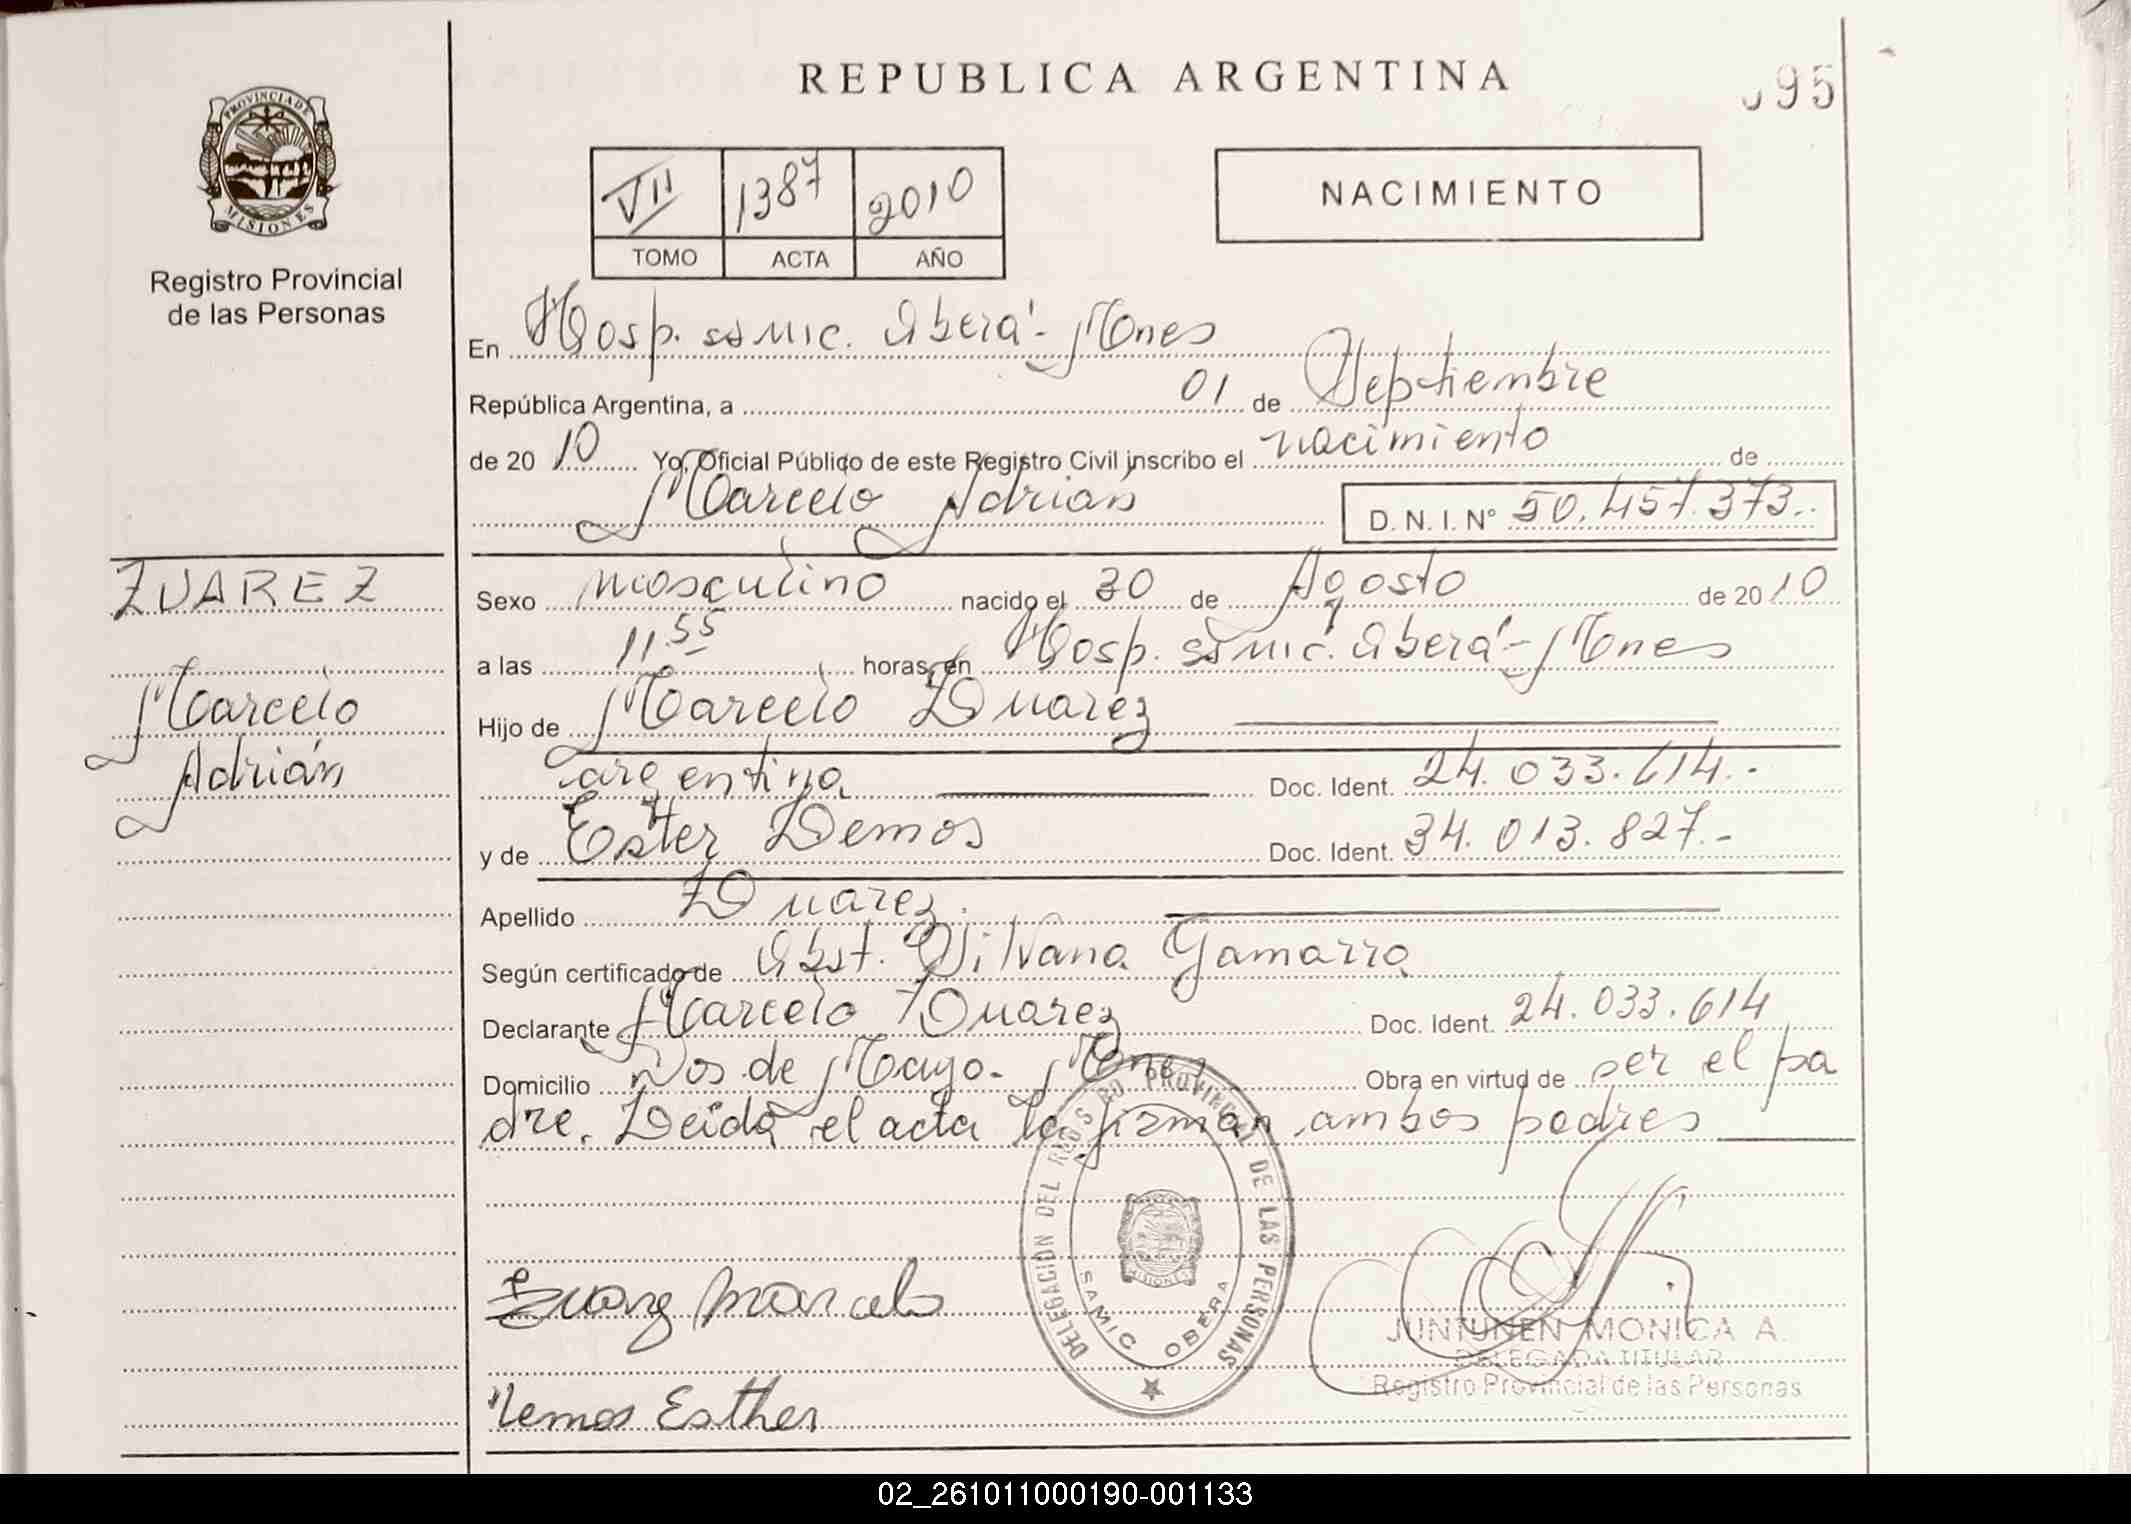 REPUBLICA ARGENTINA
095
PROVINCIA DE
MISIONES
Registro Provincial
de las Personas
VII 1387 2010
TOMO ACTA AÑO
NACIMIENTO
En Hosp. samic. Oberá - Mnes
República Argentina, a 01 de Septiembre
de 20 10 Yo, Oficial Público de este Registro Civil inscribo el nacimiento de
Marcelo Adrian D. N. I. N° 50.457.373..
ZUAREZ
Marcelo
Adrián
Sexo masculino nacido el 30 de Agosto de 20 10
a las 11.55 horas, en Hosp. samic. Oberá - Mnes
Hijo de Marcelo Zuarez
argentina Doc. Ident. 24.033.614.-
y de Ester Lemos Doc. Ident. 34.013.827.-
Apellido Zuarez.
Según certificado de Obst. Silvana Gamarra
Declarante Marcelo Zuarez Doc. Ident. 24.033.614
Domicilio Dos de Mayo. Mnes Obra en virtud de ser el pa
dre. Leída el acta la firman ambos padres
DELEGACION DEL REGISTRO PROVINCIAL DE LAS PERSONAS
MISIONES
SAMIC OBERA
Zuarez Marcelo
Lemos Esther
JUNTUNEN MONICA A.
DELEGADA TITULAR
Registro Provincial de las Personas
02_261011000190-001133